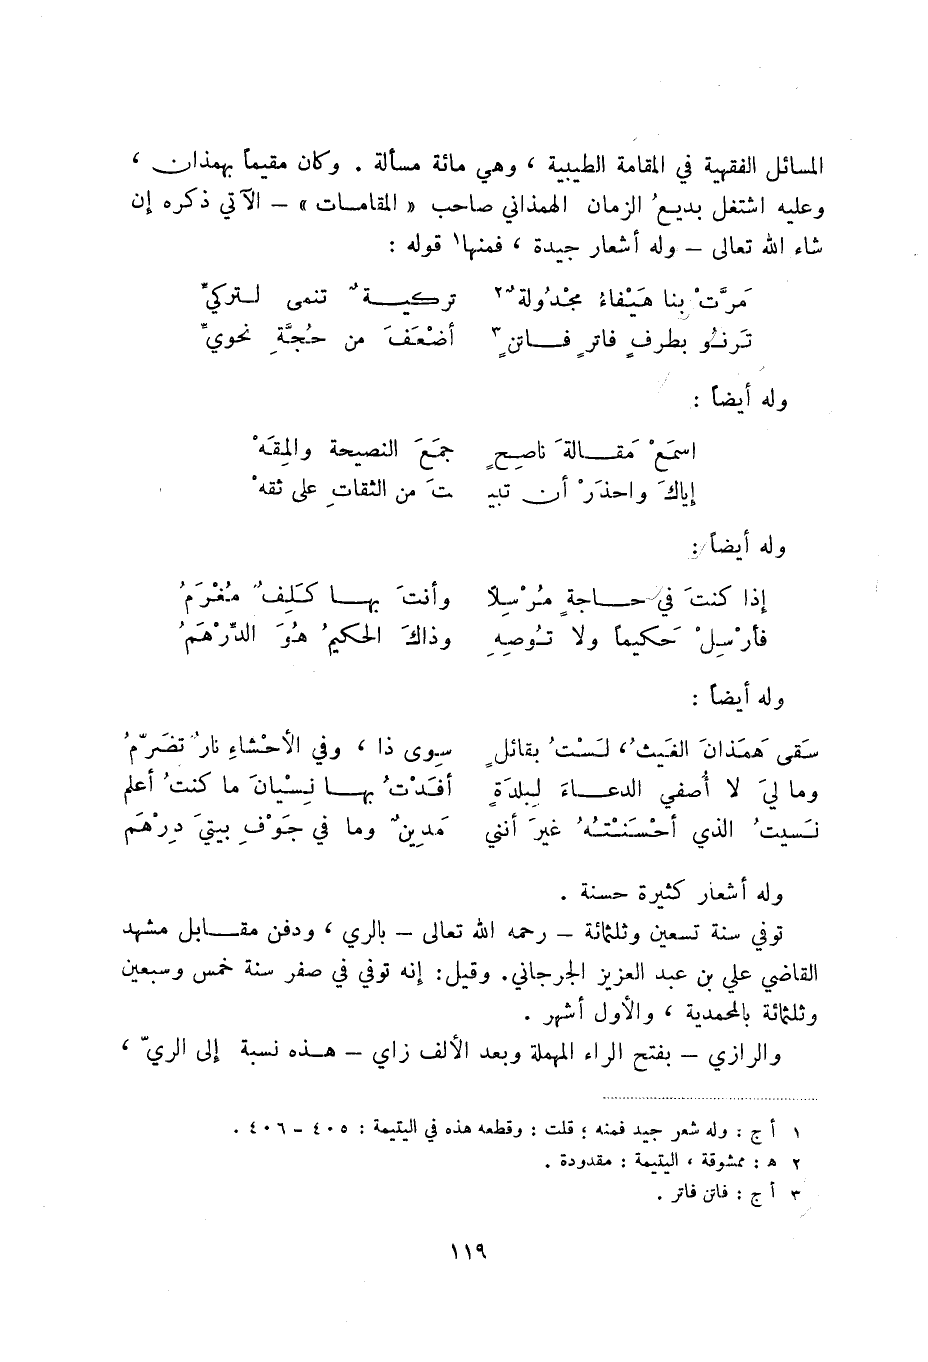 المسائل الفقهية في المقامة الطيبية ، وهي مائة مسألة . وكان مقيماً بهمذان ،
وعليه اشتغل بديعُ الزمان الهمذاني صاحب « المقامات » – الآتي ذكره إن
شاء الله تعالى – وله أشعار جيدة ، فمنها١ قوله :
مَرَّتْ بنا هَيْفاءُ مجْدُولةٌ٢ تركيةٌ تنمى لتركيِّ
تَرنُو بطرفٍ فاترٍ فاتنٍ٣ أضْعَفَ من حُجَّةِ نحويِّ
وله أيضاً :
اسمَعْ مَقالةَ ناصِحٍ جمَعَ النصيحة والمِقَهْ
إياكَ واحذَرْ أن تبيـ ـتَ من الثقاتِ على ثقهْ
وله أيضاً :
إذا كنتَ في حاجةٍ مُرْسِلاً وأنتَ بها كَلِفٌ مُغْرَمُ
فأرْسِلْ حَكيماً ولا تُوصِهِ وذاكَ الحكيمُ هُوَ الدِّرْهَمُ
وله أيضاً :
سَقى هَمَذانَ الغَيثُ، لَسْتُ بقائلٍ سِوى ذا ، وفي الأحْشاءِ نارٌ تضَرَّمُ
وما ليَ لا أُصفي الدعاءَ لبلدَةٍ أفَدْتُ بها نِسْيانَ ما كنتُ أعلم
نَسيتُ الذي أحْسَنْتُهُ غيرَ أنني مَدينٌ وما في جَوْفِ بيتيَ دِرْهَم
وله أشعار كثيرة حسنة .
توفي سنة تسعين وثلثمائة – رحمه الله تعالى – بالري ، ودفن مقابل مشهد
القاضي علي بن عبد العزيز الجرجاني. وقيل: إنه توفي في صفر سنة خمس وسبعين
وثلثمائة بالمحمدية ، والأول أشهر .
والرازي – بفتح الراء المهملة وبعد الألف زاي – هذه نسبة إلى الريّ ،
١ أ ج : وله شعر جيد فمنه ؛ قلت : وقطعه هذه في اليتيمة : ٤٠٥ – ٤٠٦ .
٢ ه : ممشوقة ، اليتيمة : مقدودة .
٣ أ ج : فاتن فاتر .
١١٩